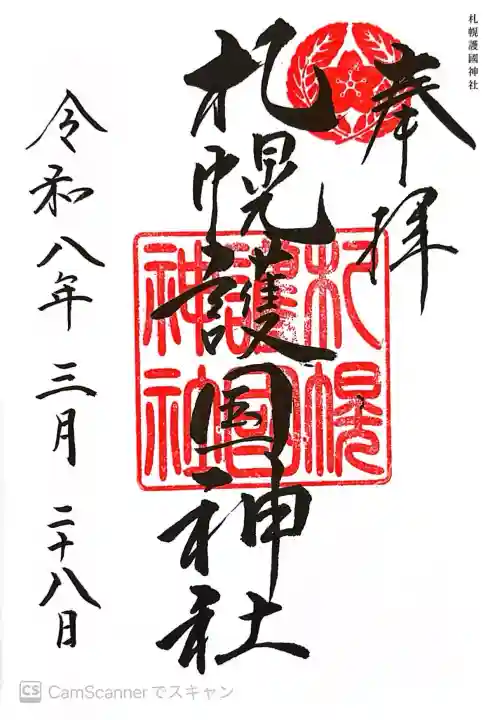 札幌護國神社
奉拝
札幌護国神社
札幌
護国
神社
令和八年三月二十八日
CS CamScannerでスキャン